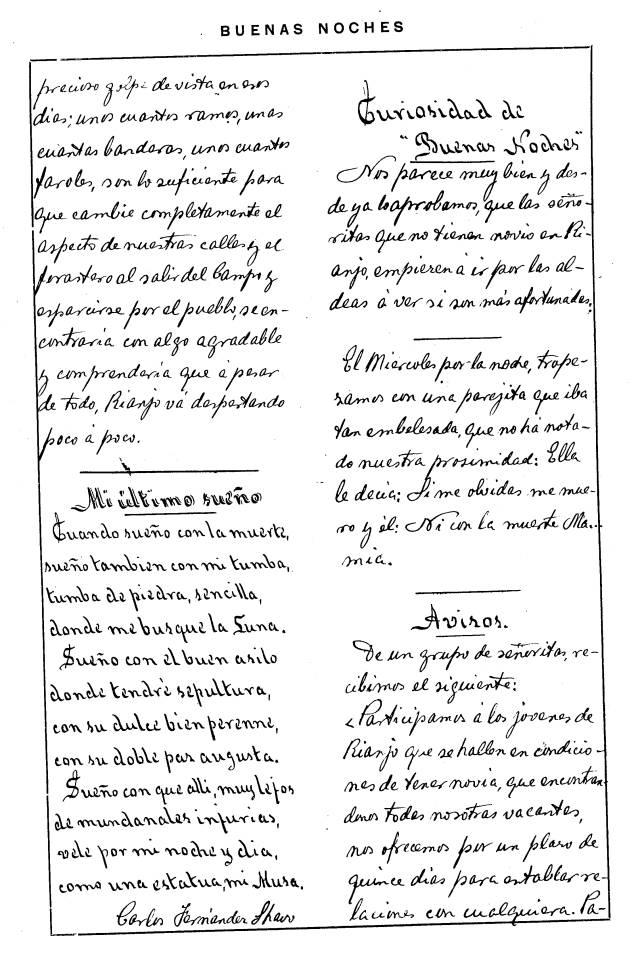 BUENAS NOCHES
precioso golpe de vista en esos
dias; unos cuantos ramos, unas
cuantas banderas, unos cuantos
faroles, son lo suficiente para
que cambie completamente el
aspecto de nuestras calles y el
forastero al salir del Campo y
esparcirse por el pueblo, se en-
contraria con algo agradable
y comprenderia que á pesar
de todo, Rianjo vá despertando
poco á poco.
Mi último sueño
Cuando sueño con la muerte,
sueño tambien con mi tumba,
tumba de piedra, sencilla,
donde me busque la Luna.
Sueño con el buen asilo
donde tendré sepultura,
con su dulce bien perenne,
con su doble paz augusta.
Sueño con que alli, muy lejos
de mundanales injurias,
vele por mi noche y dia,
como una estatua, mi Musa.
Carlos Fernández Shaw
Curiosidad de
"Buenas Noches"
Nos parece muy bien y des-
de ya lo aprobamos, que las seño-
ritas que no tienen novio en Ri-
anjo, empiezen á ir por las al-
deas á ver si son más afortunadas.
El Miercoles por la noche, trope-
zamos con una parejita que iba
tan embelesada, que no há nota-
do nuestra prosimidad: Ella
le decia: Si me olvidas me mue-
ro y él: Ni con la muerte Ma..
mia.
Avisos.
De un grupo de señoritas, re-
cibimos el siguiente:
«Participamos á los jovenes de
Rianjo que se hallen en condicio-
nes de tener novia, que encontran-
donos todas nosotras vacantes,
nos ofrecemos por un plazo de
quince dias para entablar re-
laciones con cualquiera. Pa-